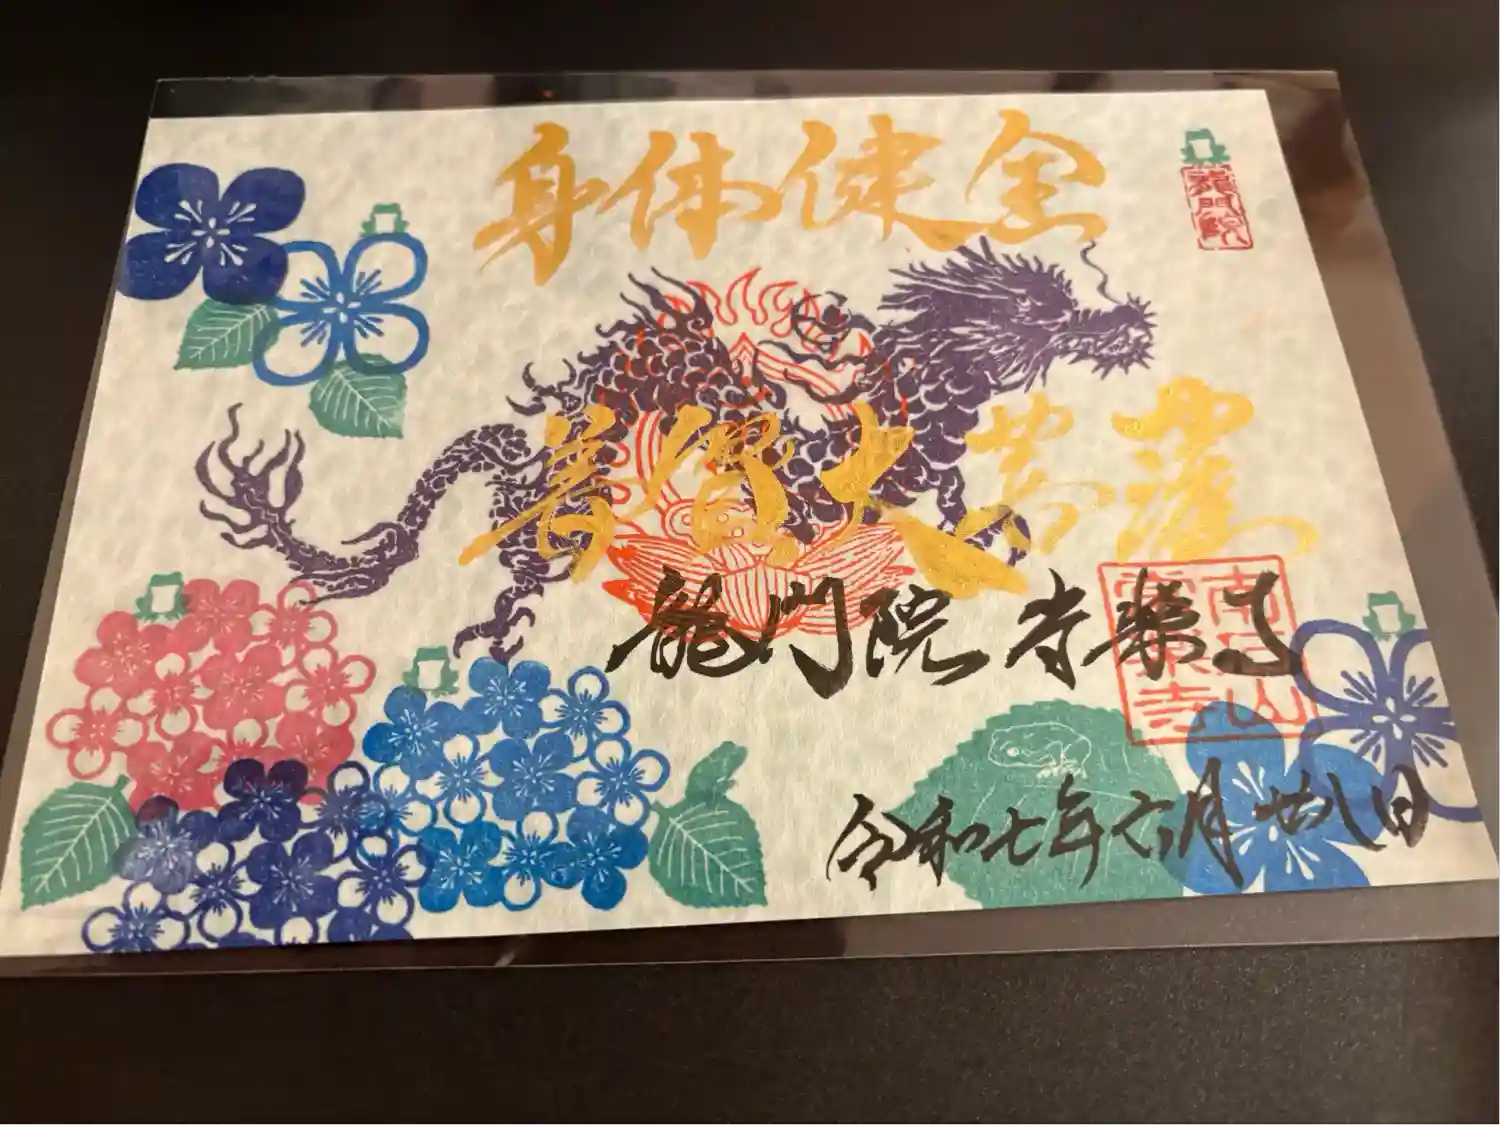 身体健全
龍門院
普賢大菩薩
龍門院 常楽寺
令和七年六月廿八日